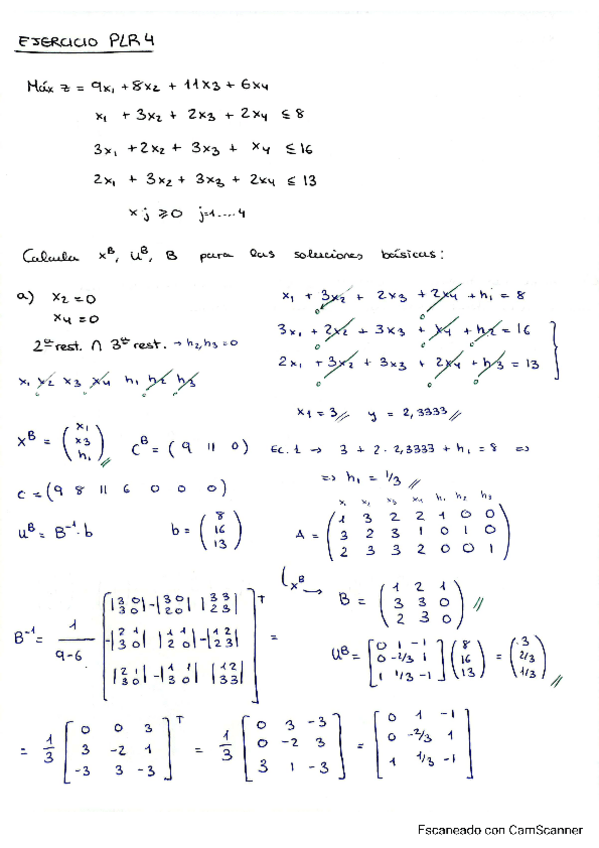 EJERCICIO PLR4
Máx z = 9x₁ + 8x₂ + 11x₃ + 6x₄
x₁ + 3x₂ + 2x₃ + 2x₄ ≤ 8
3x₁ + 2x₂ + 3x₃ + x₄ ≤ 16
2x₁ + 3x₂ + 3x₃ + 2x₄ ≤ 13
xj ≥ 0 j=1....4
Calcula xᴮ, uᴮ, B para las soluciones básicas:
a) x₂ = 0
x₄ = 0
2ª rest. ∩ 3ª rest. → h₂, h₃ = 0
x₁ x₂ x₃ x₄ h₁ h₂ h₃
x₁ + 3x₂ + 2x₃ + 2x₄ + h₁ = 8
3x₁ + 2x₂ + 3x₃ + x₄ + h₂ = 16
2x₁ + 3x₂ + 3x₃ + 2x₄ + h₃ = 13
x₁ = 3 y = 2,3333
xᴮ = (x₁ x₃ h₁) cᴮ = (9 11 0)
Ec. 1 → 3 + 2 · 2,3333 + h₁ = 8 ⇒
⇒ h₁ = 1/3
c = (9 8 11 6 0 0 0)
uᴮ = B⁻¹ · b b = (8 16 13)
x₁ x₂ x₃ x₄ h₁ h₂ h₃
1 3 2 2 1 0 0
A = 3 2 3 1 0 1 0
2 3 3 2 0 0 1
xᴮ →
1 2 1
B = 3 3 0
2 3 0
B⁻¹ = 1 / 9-6
|3 0 3 0| -|3 0 2 0| |3 3 2 3| T
-|2 1 3 0| |1 1 2 0| -|1 2 2 3| =
|2 1 3 0| -|1 1 3 0| |1 2 3 3|
uᴮ =
0 1 -1
0 -2/3 1
1 1/3 -1
(8 16 13) = (3 2/3 1/3)
= 1/3
0 0 3
3 -2 1
-3 3 -3
T
= 1/3
0 3 -3
0 -2 3
3 1 -3
=
0 1 -1
0 -2/3 1
1 1/3 -1
Escaneado con CamScanner